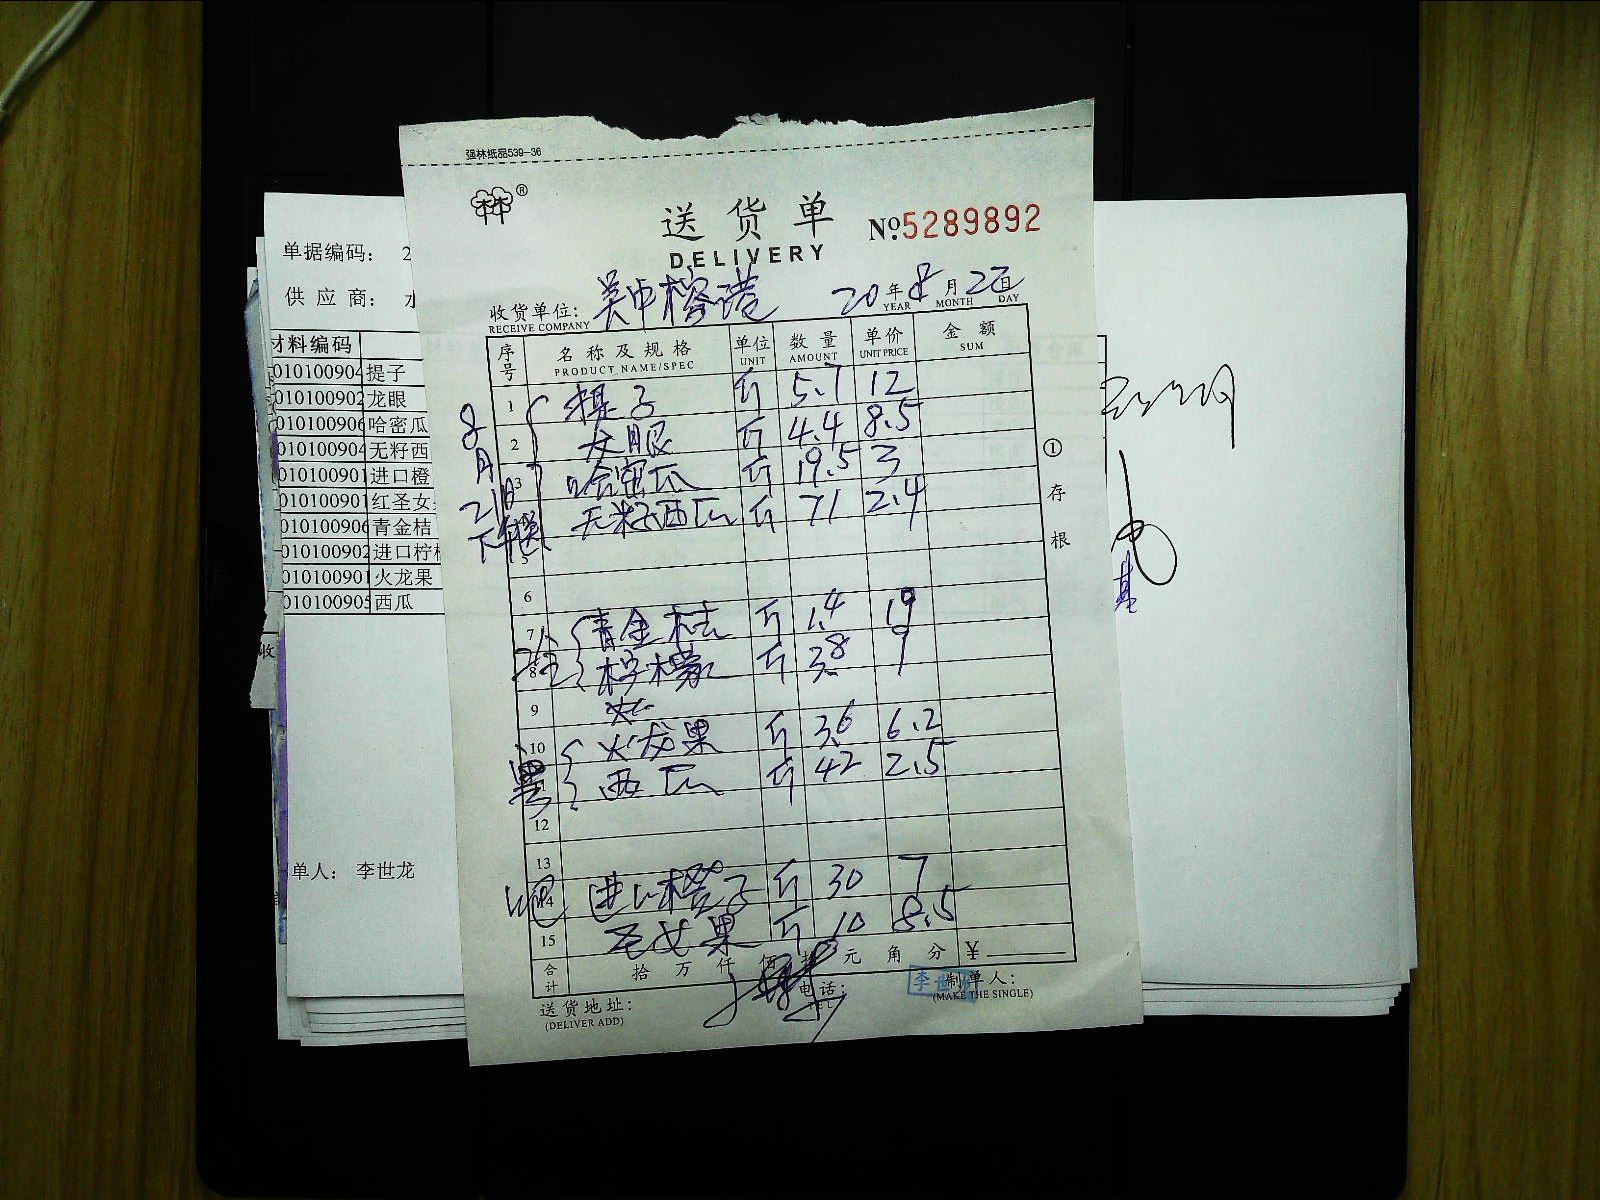 强林纸品539-36
林®
送货单
№5289892
DELIVERY
收货单位: 吴中榕港 20年8月22日
RECEIVE COMPANY YEAR MONTH DAY
序号 名称及规格 单位 数量 单价 金额
PRODUCT NAME/SPEC UNIT AMOUNT UNIT PRICE SUM
1 提子 斤 5.7 12
2 龙眼 斤 4.4 8.5
3 哈密瓜 斤 19.5 3
无籽西瓜 斤 71 2.4
8月21日
下午送
5
6
7 青金桔 斤 1.4 19
8 柠檬 斤 3.8 9
9
10 火龙果 斤 3.6 6.2
西瓜 斤 42 2.5
12
13
14 吧 进口橙子 斤 30 7
15 圣女果 斤 10 8.5
合计 拾 万 仟 佰 拾 元 角 分 ¥
送货地址: 电话: 制单人:
(DELIVER ADD) TEL (MAKE THE SINGLE)
李世
①存根
单据编码: 2
供应商: 水
材料编码
010100904 提子
010100902 龙眼
010100906 哈密瓜
010100904 无籽西
010100901 进口橙
010100901 红圣女
010100906 青金桔
010100902 进口柠
010100901 火龙果
010100905 西瓜
收
单人: 李世龙